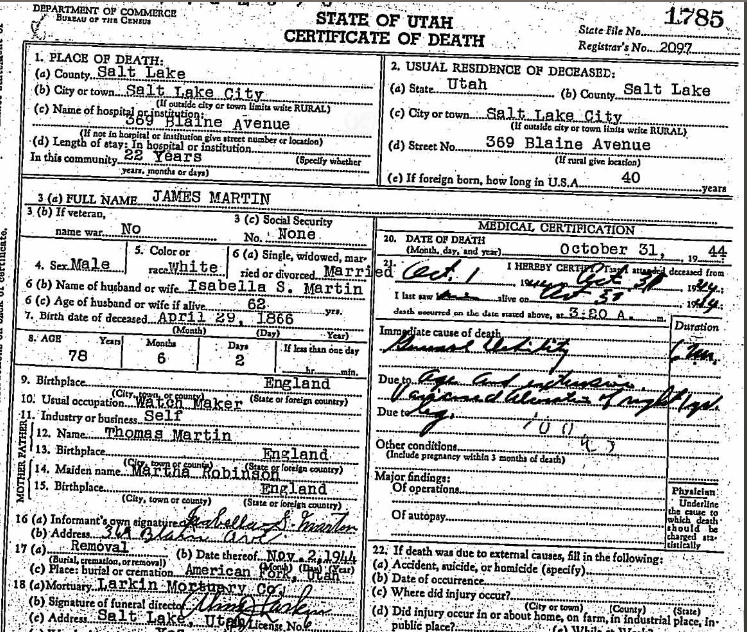 DEPARTMENT OF COMMERCE
BUREAU OF THE CENSUS
STATE OF UTAH
CERTIFICATE OF DEATH
1785
State File No.
Registrar's No. 2097
1. PLACE OF DEATH:
(a) County Salt Lake
(b) City or town Salt Lake City
(If outside city or town limits write RURAL)
(c) Name of hospital or institution:
369 Blaine Avenue
(If not in hospital or institution give street number or location)
(d) Length of stay: In hospital or institution
In this community 22 Years (Specify whether
years, months or days)
2. USUAL RESIDENCE OF DECEASED:
(a) State Utah (b) County Salt Lake
(c) City or town Salt Lake City
(If outside city or town limits write RURAL)
(d) Street No. 369 Blaine Avenue
(If rural give location)
(e) If foreign born, how long in U.S.A. 40 years
3 (a) FULL NAME JAMES MARTIN
3 (b) If veteran, name war No
3 (c) Social Security No. None
4. Sex Male
5. Color or race White
6 (a) Single, widowed, married or divorced Married
6 (b) Name of husband or wife Isabella S. Martin
6 (c) Age of husband or wife if alive 62 yrs.
7. Birth date of deceased April 29, 1866
(Month) (Day) Year)
8. AGE Years Months Days If less than one day
78 6 2 hr. min.
9. Birthplace England
(City, town or county) (State or foreign country)
10. Usual occupation Watch Maker
11. Industry or business Self
MOTHER FATHER
12. Name Thomas Martin
13. Birthplace England
(City, town or county) (State or foreign country)
14. Maiden name Martha Robinson
15. Birthplace England
(City, town or county) (State or foreign country)
16 (a) Informant's own signature Isabella S. Martin
(b) Address 369 Blain Ave
17 (a) Removal (b) Date thereof Nov. 2, 1944
(Burial, cremation, or removal) (Month) (Day) (Year)
(c) Place: burial or cremation American Fork, Utah
18 (a) Mortuary Larkin Mortuary Co.
(b) Signature of funeral director Larkin
(c) Address Salt Lake, Utah License No.
MEDICAL CERTIFICATION
20. DATE OF DEATH
(Month, day, and year) October 31, 1944
21. I HEREBY CERTIFY That I attended deceased from
Oct. 1 1944 Oct 31 1944
I last saw him alive on Oct 31 1944
death occurred on the date stated above, at 3:20 A. m.
Duration
Immediate cause of death
General Debility
Due to Age and extensive
Varicosed ulceration of right 1 yr.
Due to leg.
Other conditions
(Include pregnancy within 3 months of death)
Major findings:
Of operations
Of autopsy
Physician
Underline
the cause to
which death
should be
charged sta-
tistically
22. If death was due to external causes, fill in the following:
(a) Accident, suicide, or homicide (specify)
(b) Date of occurrence
(c) Where did injury occur?
(City or town) (County) (State)
(d) Did injury occur in or about home, on farm, in industrial place, in
public place?